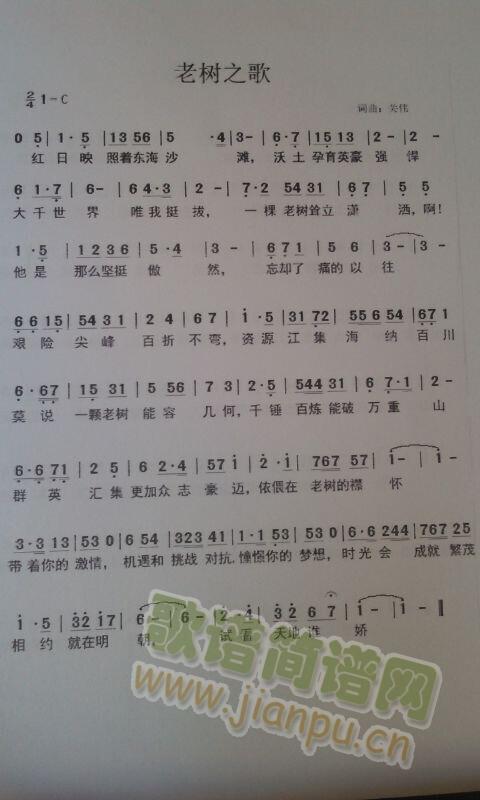 老树之歌
2/4 1-C
词曲：关伟
0 5 | 1· 5 | 13 56 | 5 ·4 | 3- | 6·7 | 15 13 | 2- | 2-
红日映 照着东海沙 滩，沃土孕育英豪强 悍
6 1·7 | 6- | 64·3 | 2- | 7·2 | 54 31 | 67 | 5 5
大千世 界 唯我挺 拔，一棵 老树耸立 潇 洒，啊！
1 ·5 | 1 2 3 6 | 5 ·4 | 3 - | 6 7 1 | 5 6 | 3- | 3-
他是 那么坚挺 傲 然， 忘却了 痛的以 往
6 6 15 | 54 31 | 2 4 | 6 7 | i·5 | 31 72 | 55 6 54 | 67 1
艰险 尖峰 百折 不弯，资源 江集 海 纳 百川
6 · 67 | 15 31 | 5 56 | 7 3 | 2·5 | 544 31 | 6 7·1 | 2-
莫说 一颗老树 能容 几何，千锤 百炼能破 万重 山
6·6 71 | 2 5 | 6 2·4 | 57 i | 2·i | 767 57 | i- | i-
群英 汇集 更加众 志 豪 迈，依偎在 老树的襟 怀
3·3 13 | 53 0 | 6 54 | 323 41 | 1·1 53 | 53 0 | 6·6 244 | 767 25
带着你的 激情，机遇和 挑战 对抗.憧憬你的 梦想，时光会 成就 繁茂
i · 5 | 32 17 | 6- | 6- | 2·4 | 32 6 7 | i- | i- ‖
相约 就在明 朝， 试看 天地 娇
歌谱简谱网
www.jianpu.cn